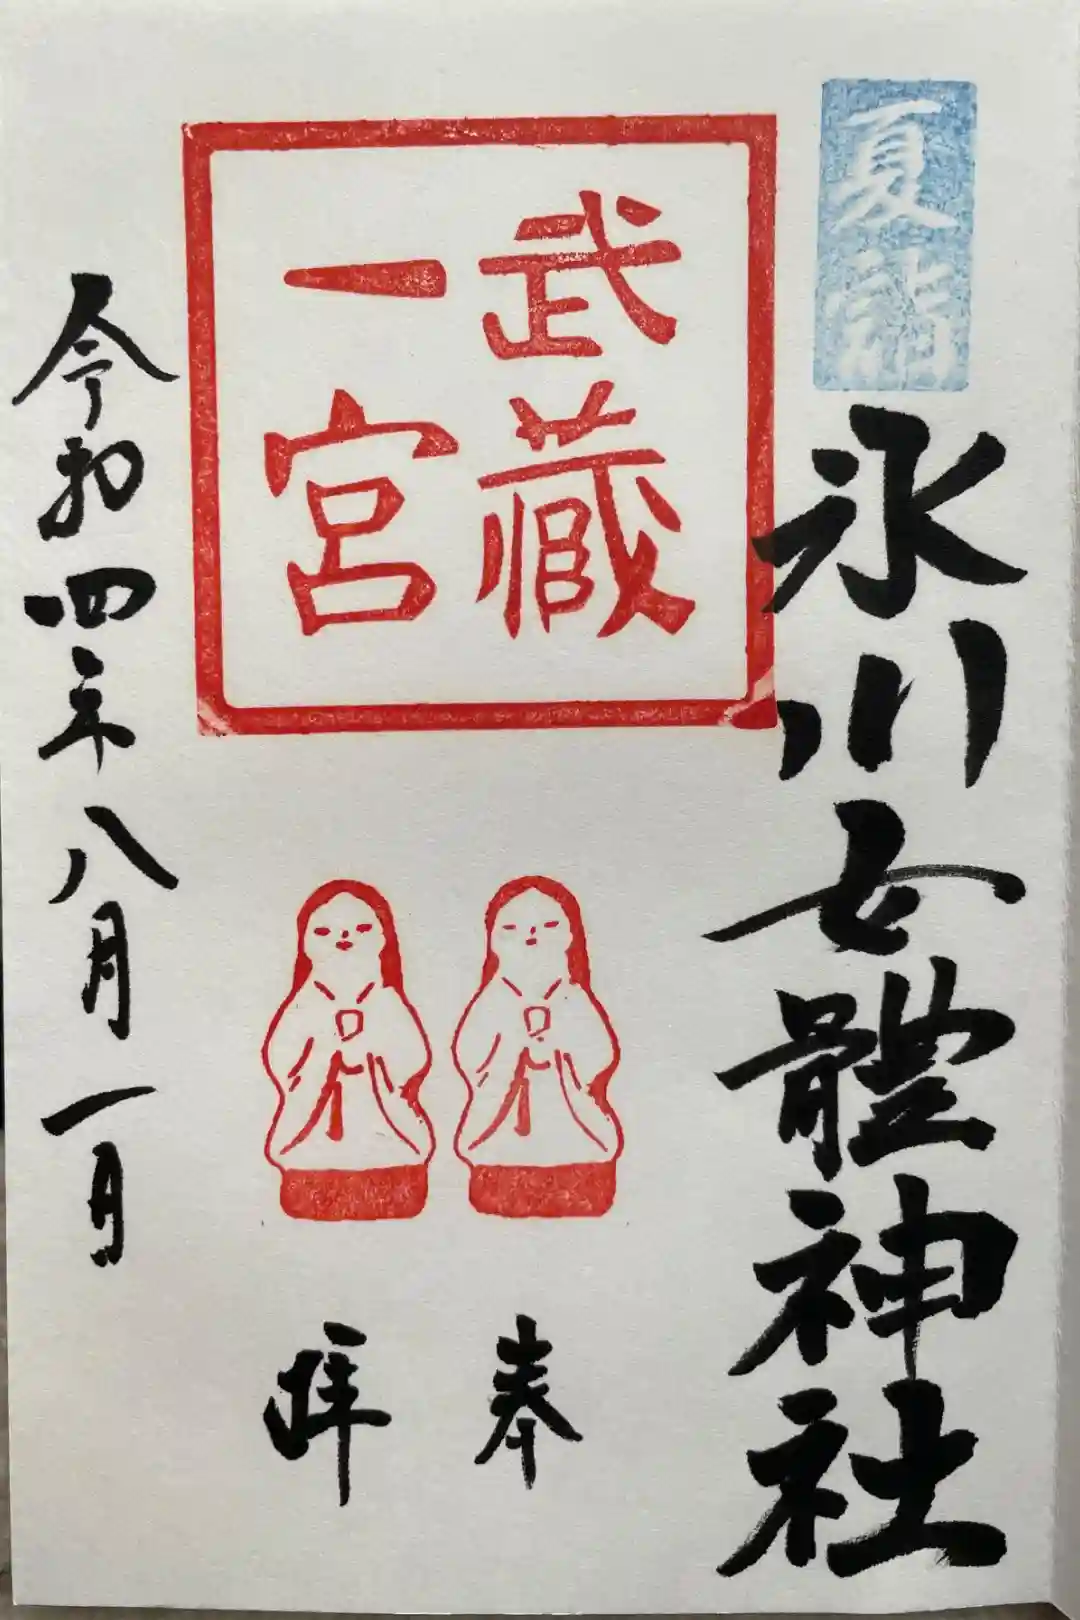 夏詣
氷川女體神社
武藏
一宮
奉
拝
令和四年八月一日